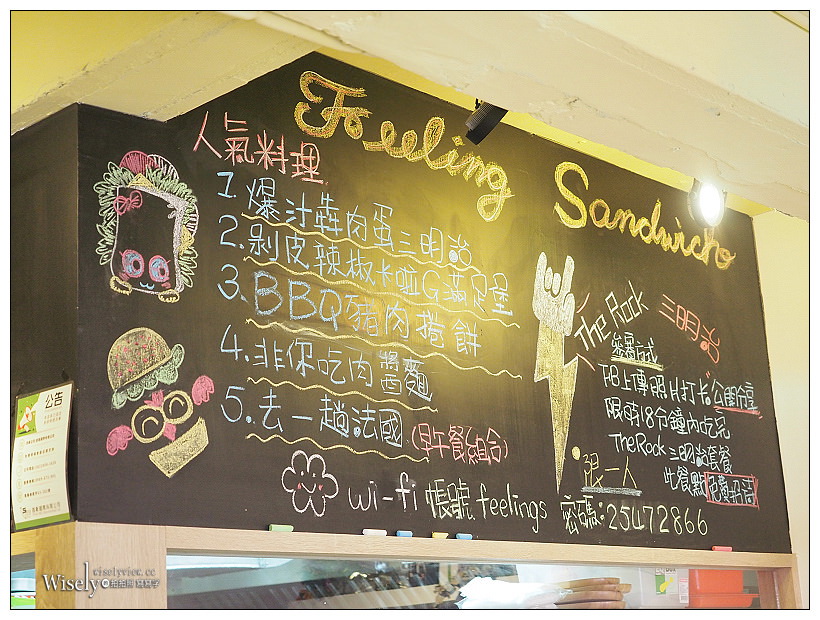 Feeling Sandwich
人氣料理
1. 爆汁犇肉蛋三明治
2. 剝皮辣椒卡啦G滿足堡
3. BBQ豬肉捲餅
4. 非你吃肉醬麵
5. 去一趟法國(早午餐組合)
wi-fi 帳號 feelings 密碼:25472866
The Rock 三明治
參賽方式
FB上傳照片打卡公開分享
限時18分鐘內吃完
The Rock 三明治套餐
此餐點免費招待
限一人
公告
wiselyview.cc
Wisely 拍拍照 寫寫字